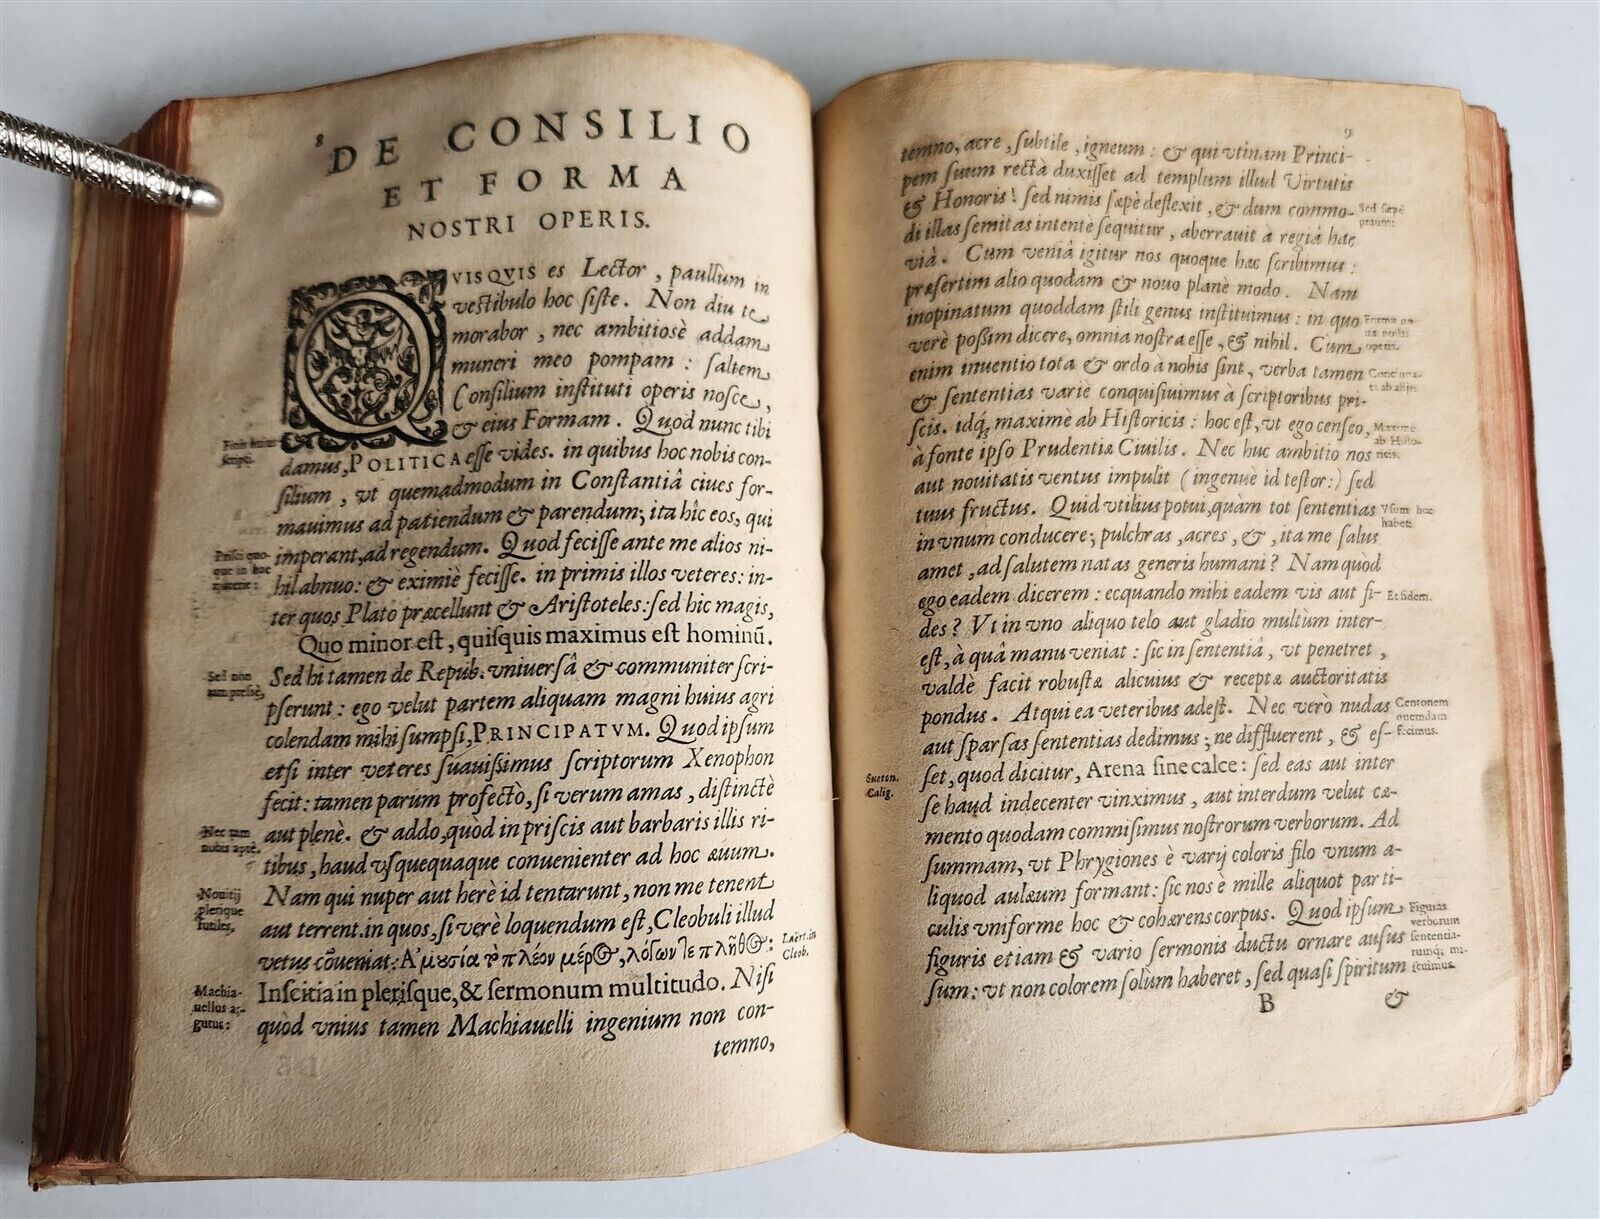 8
DE CONSILIO
ET FORMA
NOSTRI OPERIS.
QVISQVIS es Lector, paullum in
vestibulo hoc siste. Non diu te
morabor, nec ambitiosè addam
muneri meo pompam: saltem
Consilium instituti operis nosce,
& eius Formam. Quod nunc tibi
damus, POLITICA esse vides. in quibus hoc nobis con-
silium, vt quemadmodum in Constantiâ ciues for-
mauimus ad patiendum & parendum; ita hîc eos, qui
imperant, ad regendum. Quod fecisse ante me alios ni-
hil abnuo: & eximiè fecisse. in primis illos veteres: in-
ter quos Plato præcellunt & Aristoteles: sed hic magis,
Quo minor est, quisquis maximus est hominū.
Sed hi tamen de Repub. vniuersâ & communiter scri-
pserunt: ego velut partem aliquam magni huius agri
colendam mihi sumpsi, PRINCIPATVM. Quod ipsum
etsi inter veteres suauissimus scriptorum Xenophon
fecit: tamen parum profecto, si verum amas, distinctè
aut plenè. & addo, quòd in priscis aut barbaris illis ri-
tibus, haud vsquequaque conuenienter ad hoc æuum.
Nam qui nuper aut herè id tentarunt, non me tenent
aut terrent. in quos, si verè loquendum est, Cleobuli illud
vetus cōueniat: Ἀμουσία τὸ πλέον μέρος, λόγων τε πλῆθος:
Inscitia in plerisque, & sermonum multitudo. Nisi
quòd vnius tamen Machiauelli ingenium non con-
temno,
Finis huius
scripti.
Prisci quo-
que in hoc
itinere:
Sed non
tam pressè,
Nec tam
nobis aptè.
Nouitij
plerique
futiles,
Laërt. in
Cleob.
Machia-
uellus ar-
gutus:
9
temno, acre, subtile, igneum: & qui vtinam Princi-
pem suum rectà duxisset ad templum illud Virtutis
& Honoris! sed nimis sæpè deflexit, & dum commo-
di illas semitas intentè sequitur, aberrauit à regiâ hac
viâ. Cum veniâ igitur nos quoque hæc scribimus:
præsertim alio quodam & nouo planè modo. Nam
inopinatum quoddam stili genus instituimus: in quo
verè possim dicere, omnia nostra esse, & nihil. Cum
enim inuentio tota & ordo à nobis sint, verba tamen
& sententias variè conquisiuimus à scriptoribus pri-
scis. idq́; maximè ab Historicis: hoc est, vt ego censeo,
à fonte ipso Prudentiæ Ciuilis. Nec huc ambitio nos
aut nouitatis ventus impulit (ingenuè id testor:) sed
tuus fructus. Quid vtilius potui, quàm tot sententias
in vnum conducere; pulchras, acres, &, ita me salus
amet, ad salutem natas generis humani? Nam quòd
ego eadem dicerem: ecquando mihi eadem vis aut fi-
des? Vt in vno aliquo telo aut gladio multùm inter-
est, à quâ manu veniat: sic in sententiâ, vt penetret,
valdè facit robustæ alicuius & receptæ auctoritatis
pondus. Atqui ea veteribus adest. Nec verò nudas
aut sparsas sententias dedimus; ne diffluerent, & es-
set, quod dicitur, Arena sine calce: sed eas aut inter
se haud indecenter vinximus, aut interdum velut cæ-
mento quodam commisimus nostrorum verborum. Ad
summam, vt Phrygiones è varij coloris filo vnum a-
liquod aulæum formant: sic nos è mille aliquot parti-
culis vniforme hoc & cohærens corpus. Quod ipsum
figuris etiam & vario sermonis ductu ornare ausus
sum: vt non colorem solùm haberet, sed quasi spiritum
B &
Sed sæpè
prauus:
Forma no-
ua nostri
operis.
Concinna-
ti ab alijs:
Maximè
ab Histo-
ricis.
Vsum hoc
habet:
Et fidem.
Centonem
quemdam
fecimus.
Sueton.
Calig.
Figuras
verborum
sententia-
rumq; mi-
scuimus.